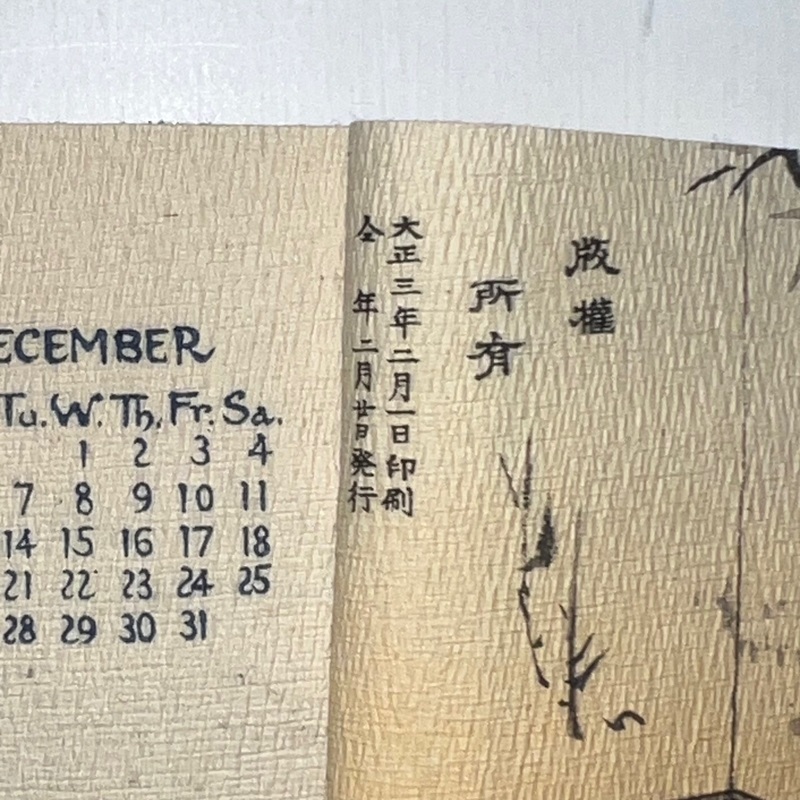 ECEMBER
Tu. W. Th. Fr. Sa.
1 2 3 4
7 8 9 10 11
14 15 16 17 18
21 22 23 24 25
28 29 30 31
版權
所有
大正三年二月一日印刷
仝年二月廿日発行